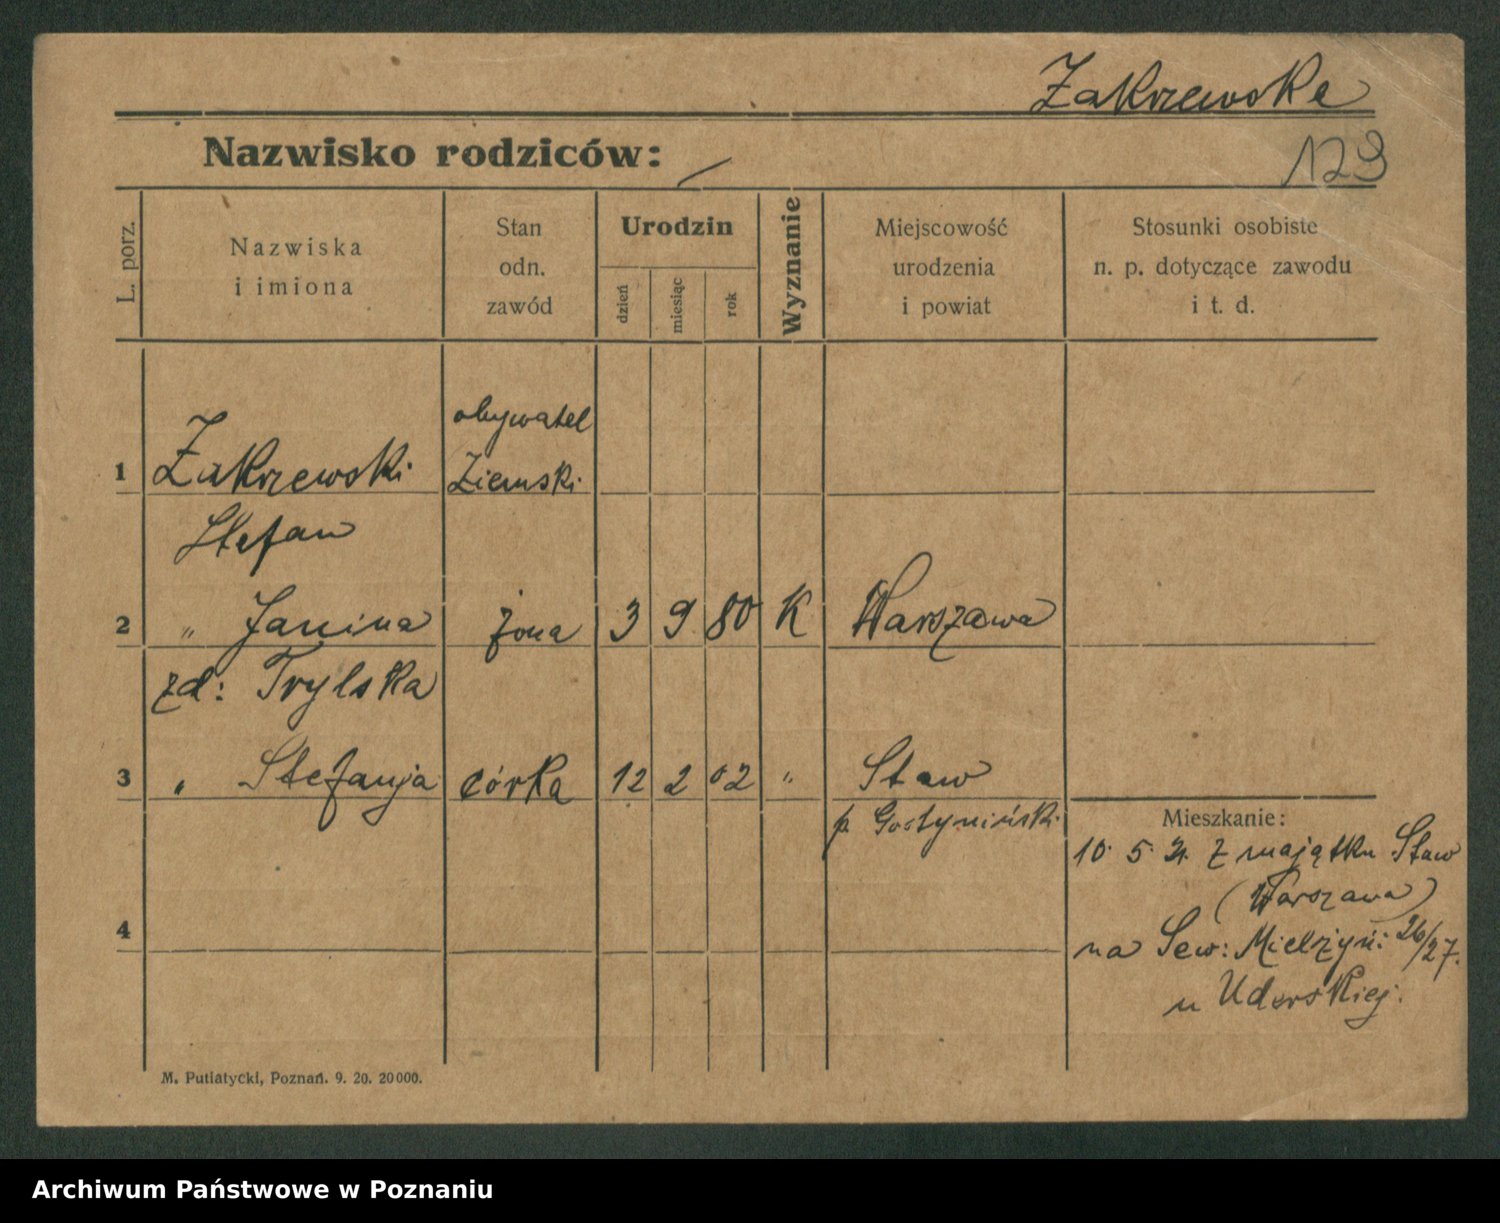 Zakrzewska
Nazwisko rodziców: /
129
L. porz.
Nazwiska
i imiona
Stan
odn.
zawód
Urodzin
dzień
miesiąc
rok
Wyznanie
Miejscowość
urodzenia
i powiat
Stosunki osobiste
n. p. dotyczące zawodu
i t. d.
1 Zakrzewski obywatel Ziemski
Stefan
2 " Janina żona 3 9 80 K Warszawa
zd: Trylska
3 " Stefanja córka 12 2 02 " Staw
p. Gostyniński
Mieszkanie:
10. 5. 21. z majątku Staw
(Warszawa)
na Sew: Mielżyń: 26/27.
u Uderskiej.
4
M. Putiatycki, Poznań. 9. 20. 20000.
Archiwum Państwowe w Poznaniu